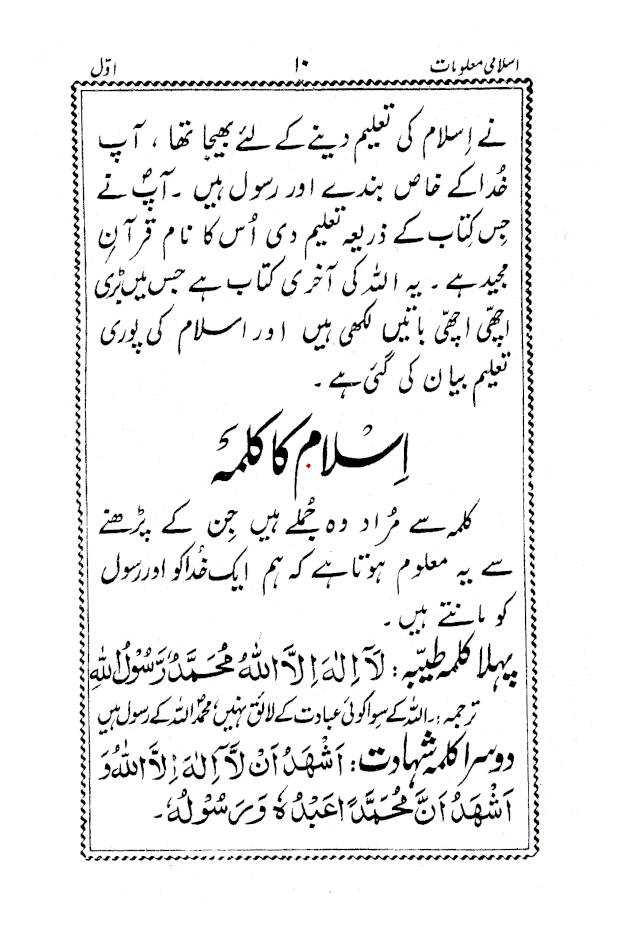 اسلامی معلومات ۱۰ اوّل
نے اِسلام کی تعلیم دینے کے لئے بھیجا تھا ، آپ
خُدا کے خاص بندے اور رسول ہیں ۔ آپؐ نے
جِس کِتاب کے ذریعہ تعلیم دی اُس کا نام قرآنِ
مجید ہے ۔ یہ اللہ کی آخری کتاب ہے جس میں بڑی
اچھّی اچھّی باتیں لکھی ہیں اور اسلام کی پوری
تعلیم بیان کی گئی ہے ۔
اِسْلام کا کلمہ
کلمہ سے مُراد وہ جُملے ہیں جِن کے پڑھنے
سے یہ معلوم ہوتا ہے کہ ہم ایک خُدا کو اور رسول
کو مانتے ہیں ۔
پہلا کلمہ طیّبہ : لَآ اِلٰهَ اِلَّا اللّٰهُ مُحَمَّدٌ رَّسُوْلُ اللّٰهِ
ترجمہ :۔ اللہ کے سوا کوئی عبادت کے لائق نہیں، محمدؐ اللہ کے رسول ہیں
دوسرا کلمہ شہادت : اَشْهَدُ اَنْ لَّآ اِلٰهَ اِلَّا اللّٰهُ وَ
اَشْهَدُ اَنَّ مُحَمَّدًا عَبْدُهٗ وَرَسُوْلُهٗ ۔